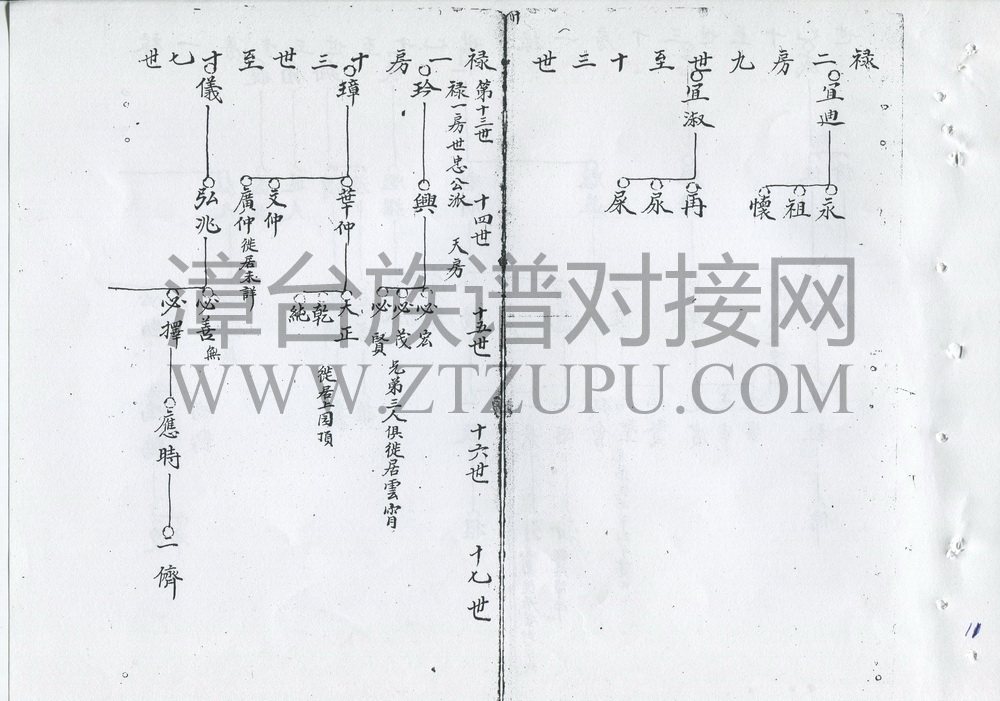 禄二房九世至十三世
宜迪
永
祖
懷
宜淑
冉
尿
屎
禄一房十三世至十七世
第十三世
十四世
十五世
十六世
十七世
禄一房世忠公派 天房
玲
興
必宏
必茂
必賢
兄弟三人俱徙居雲霄
璋
華仲
文仲
廣仲
徙居未詳
天正
乾
純
徙居上园頂
儀
弘兆
必善
無
必擇
應時
一儕
漳台族谱对接网
WWW.ZTZUPU.COM
11